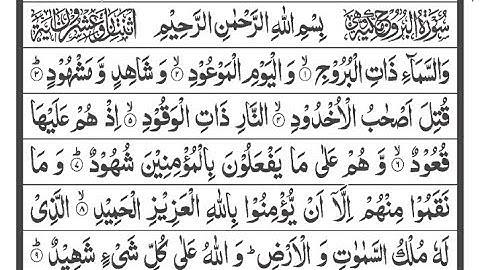 سُوْرَةُ الْبُرُوْجِ مَكِّيَّةٌ بِسْمِ اللهِ الرَّحْمٰنِ الرَّحِيْمِ
وَالسَّمَآءِ ذَاتِ الْبُرُوْجِ ۙ﴿۱﴾ وَ الْيَوْمِ الْمَوْعُوْدِ ۙ﴿۲﴾ وَ شَاهِدٍ وَّ مَشْهُوْدٍ ؕ﴿۳﴾
قُتِلَ اَصْحٰبُ الْاُخْدُوْدِ ۙ﴿۴﴾ النَّارِ ذَاتِ الْوَقُوْدِ ۙ﴿۵﴾ اِذْ هُمْ عَلَيْهَا
قُعُوْدٌ ۙ﴿۶﴾ وَّ هُمْ عَلٰى مَا يَفْعَلُوْنَ بِالْمُؤْمِنِيْنَ شُهُوْدٌ ؕ﴿۷﴾ وَ مَا
نَقَمُوْا مِنْهُمْ اِلَّاۤ اَنْ يُّؤْمِنُوْا بِاللهِ الْعَزِيْزِ الْحَمِيْدِ ۙ﴿۸﴾ الَّذِىْ
لَهٗ مُلْكُ السَّمٰوٰتِ وَ الْاَرْضِ ؕ وَ اللهُ عَلٰى كُلِّ شَىْءٍ شَهِيْدٌ ؕ﴿۹﴾